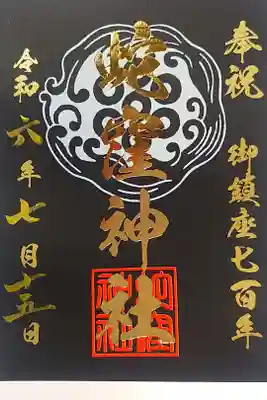 奉祝 御鎮座七百年
蛇窪神社
令和六年七月十五日